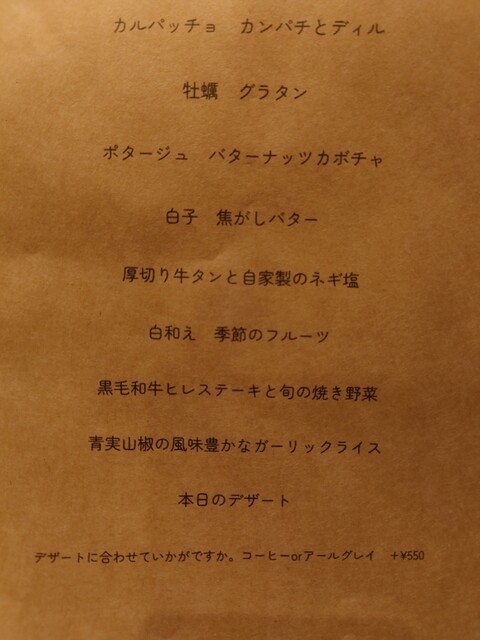 カルパッチョ　カンパチとディル
牡蠣　グラタン
ポタージュ　バターナッツカボチャ
白子　焦がしバター
厚切り牛タンと自家製のネギ塩
白和え　季節のフルーツ
黒毛和牛ヒレステーキと旬の焼き野菜
青実山椒の風味豊かなガーリックライス
本日のデザート
デザートに合わせていかがですか。コーヒーorアールグレイ　+¥550